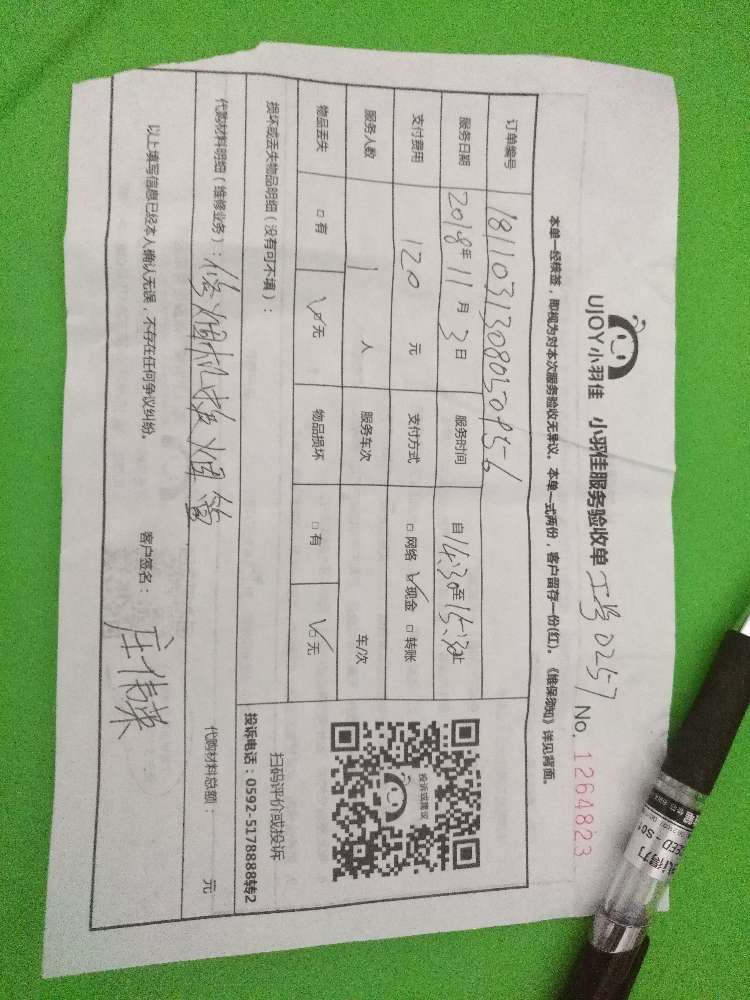 UJOY小羽佳 小羽佳服务验收单 工号0257 No. 1264823
本单一经核签，即视为对本次服务验收无异议。本单一式两份，客户留存一份(红)。《维保须知》详见背面。
订单编号
服务日期 2018年11月3日 服务时间 自14:30至15:30止
支付费用 120元 支付方式 □网络 ☑现金 □转账
服务人数 1人 服务车次 车/次
物品丢失 □有 ☑无 物品损坏 □有 ☑无
损坏或丢失物品明细（没有可不填）：
代购材料明细（维修业务）：修烟机接烟管
代购材料总额： 元
以上填写信息已经本人确认无误，不存在任何争议纠纷。 客户签名：
投诉或建议
扫码评价或投诉
投诉电话：0592-5178888转2